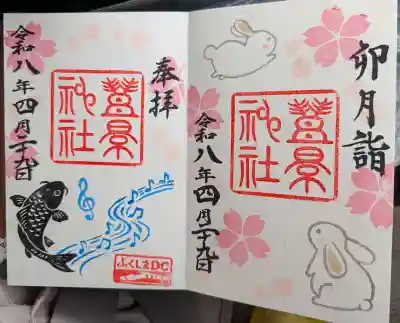 卯月詣
豊景
神社
令和八年四月二十九日
奉拝
豊景
神社
令和八年四月二十九日
ふくしまDC